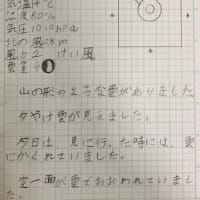 気温14℃
湿度80%
気圧1010hpa
北の風8m
風力2 けい風
雲量9
山の形のような雲がありました。
夕やけ雲が見えました。
夕日は、見に行った時には、雲
にかくれていました。
空一面が雲でおおわれていまし
た。